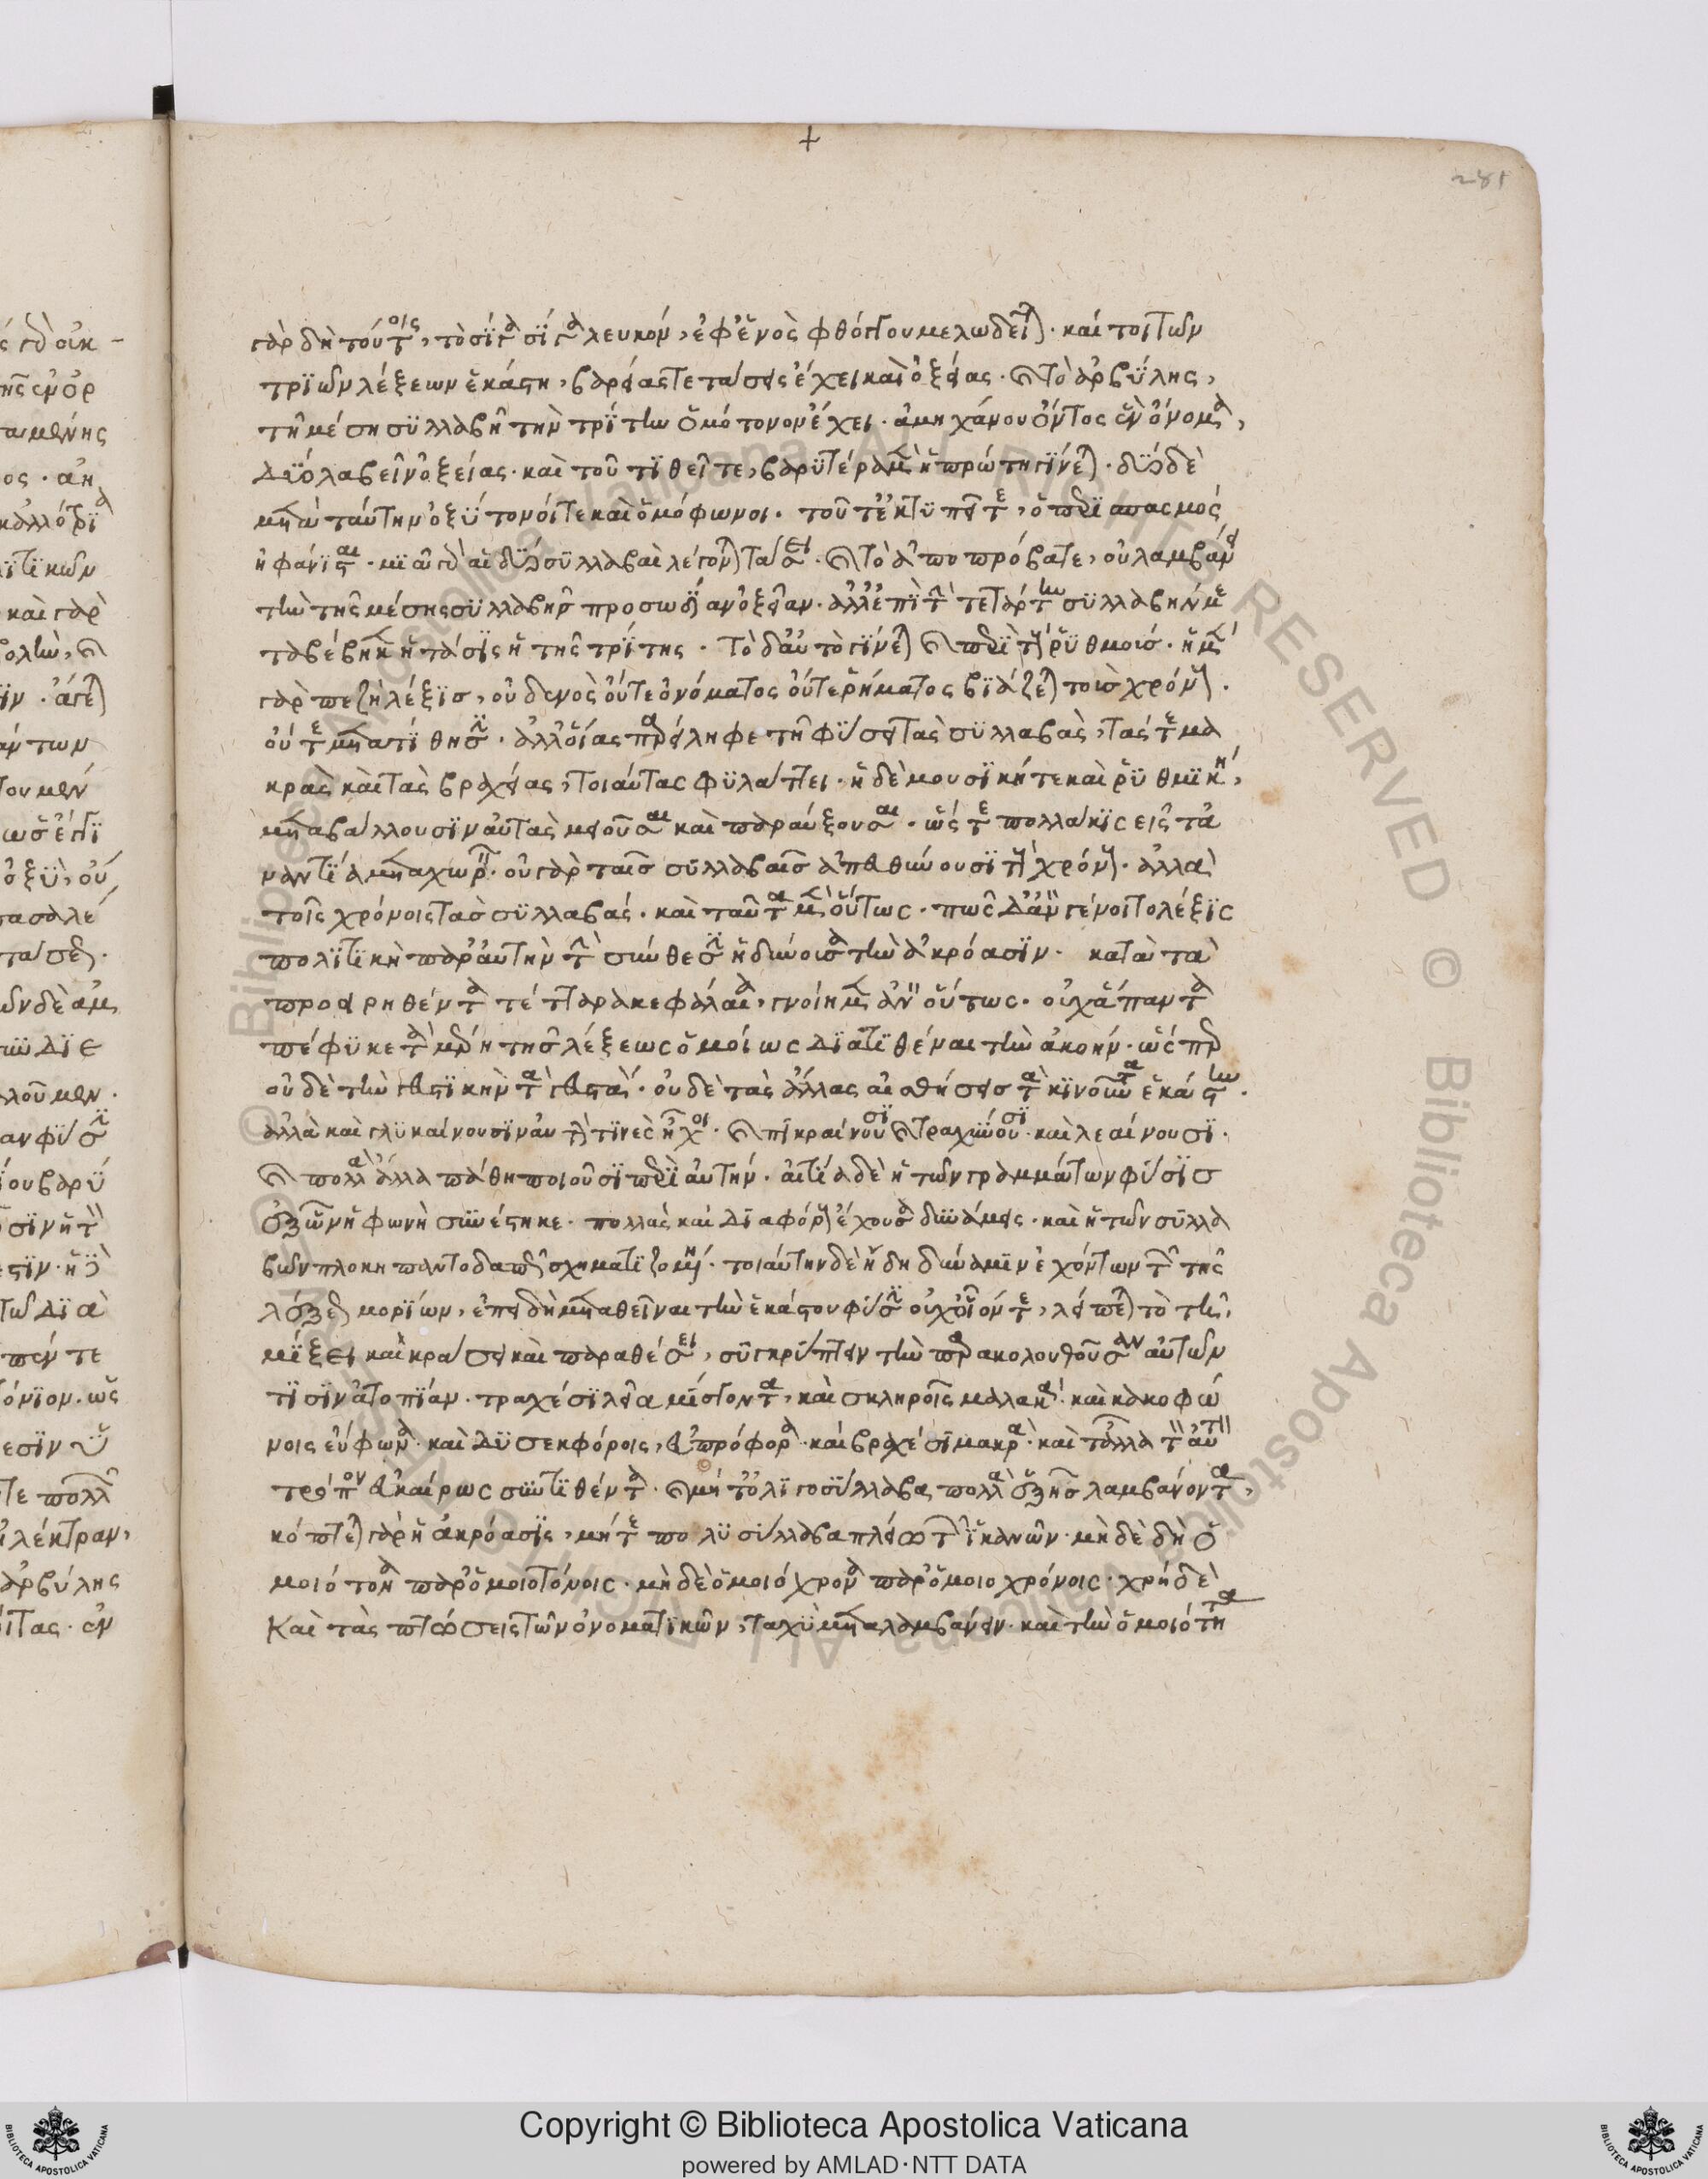 +
281
γὰρ δὴ τούτοις, τὸ σῖγα σῖγα λευκὸν, ἐφ' ἑνὸς φθόγγου μελωδεῖται. καί τοι τῶν
τριῶν λέξεων ἑκάστη, βαρείας τε τάσεις ἔχει καὶ ὀξείας. καὶ τὸ ἀρβύλης,
τῇ μέσῃ συλλαβῇ τὴν τρίτην ὁμότονον ἔχει. ἀμηχάνου ὄντος ἓν ὄνομα,
δύο λαβεῖν ὀξείας. καὶ τοῦ τιθεῖτε, βαρυτέρα μὲν ἡ πρώτη γίνεται. δύο δὲ
μετὰ ταύτην ὀξύτονοί τε καὶ ὁμόφωνοι. τοῦ τε κτυπεῖτε, ὁ περισπασμὸς
ἠφάνισται. μιᾷ γὰρ αἱ δύο συλλαβαὶ λέγονται τάσει. καὶ τὸ ἀποπρόβατε, οὐ λαμβάνει
τὴν τῆς μέσης συλλαβῆς προσωδίαν ὀξεῖαν. ἀλλ' ἐπὶ τὴν τετάρτην συλλαβὴν με
ταβέβηκεν ἡ τάσις ἡ τῆς τρίτης. τὸ δ' αὐτὸ γίνεται καὶ περὶ τοὺς ῥυθμούς. ἡ μὲν
γὰρ πεζὴ λέξις, οὐδενὸς οὔτε ὀνόματος οὔτε ῥήματος βιάζεται τοὺς χρόνους.
οὔτε μετατίθησιν. ἀλλ' οἵας παρείληφε τῇ φύσει τὰς συλλαβὰς, τάς τε μα
κρὰς καὶ τὰς βραχείας, τοιαύτας φυλάττει. ἡ δὲ μουσική τε καὶ ῥυθμικὴ,
μεταβάλλουσιν αὐτὰς μειοῦσαι καὶ παραύξουσαι. ὥς τε πολλάκις εἰς τἀ
ναντία μεταχωρεῖν. οὐ γὰρ ταῖς συλλαβαῖς ἀπευθύνουσι τοὺς χρόνους. ἀλλὰ
τοῖς χρόνοις τὰς συλλαβάς. καὶ ταῦτα μὲν οὕτως. πῶς δ' ἂν γένοιτο λέξις
πολιτικὴ παρ' αὐτὴν τὴν σύνθεσιν ἡδύνουσα τὴν ἀκρόασιν. κατὰ τὰ
προειρηθέντα τέτταρα κεφάλαια, γνοίημεν ἂν οὕτως. οὐχ ἅπαντα
πέφυκε τὰ μέρη τῆς λέξεως ὁμοίως διατιθέναι τὴν ἀκοήν. ὥσπερ
οὐδὲ τὴν γευστικὴν τὰ γευστά. οὐδὲ τὰς ἄλλας αἰσθήσεις τὰ κινοῦντα ἑκάστην.
ἀλλὰ καὶ γλυκαίνουσιν αὐτὴν τινὲς ἦχοι. καὶ πικραίνουσι καὶ τραχύνουσι καὶ λεαίνουσι.
καὶ πολλὰ ἄλλα πάθη ποιοῦσι περὶ αὐτήν. αἰτία δὲ ἥ τε τῶν γραμμάτων φύσις
ἐξ ὧν ἡ φωνὴ συνέστηκε. πολλὰς καὶ διαφόρους ἔχουσα δυνάμεις. καὶ ἡ τῶν συλλα
βῶν πλοκὴ παντοδαπῶς σχηματιζομένη. τοιαύτην δὲ ἤδη δύναμιν ἐχόντων τῶν τῆς
λέξεως μορίων, ἐπειδὴ μεταθεῖναι τὴν ἑκάστου φύσιν οὐχ οἷόν τε, λείπεται τὸ τῇ
μίξει καὶ κράσει καὶ παραθέσει, συγκρύπτειν τὴν παρακολουθοῦσαν αὐτῶν
τισὶν ἀτοπίαν. τραχέσι λεῖα μίσγοντα, καὶ σκληροῖς μαλακά. καὶ κακοφώ
νοις εὔφωνα. καὶ δυσεκφόροις, εὐπρόφορα. καὶ βραχέσι μακρά. καὶ τἄλλα τὸν αὐτὸν
τρόπον εὐκαίρως συντιθέντα. καὶ μήτ' ὀλιγοσύλλαβα πολλὰ ἑξῆς λαμβάνοντα,
κόπτεται γὰρ ἡ ἀκρόασις, μήτε πολυσύλλαβα πλείω τῶν ἱκανῶν. μὴ δὲ δὴ ὁ
μοιότονα παρ' ὁμοιοτόνοις. μὴ δὲ ὁμοιόχρονα παρ' ὁμοιοχρόνοις. χρὴ δὲ
καὶ τὰς πτώσεις τῶν ὀνοματικῶν, ταχὺ μεταλαμβάνειν. καὶ τὴν ὁμοιότητα
Copyright © Biblioteca Apostolica Vaticana
powered by AMLAD・NTT DATA